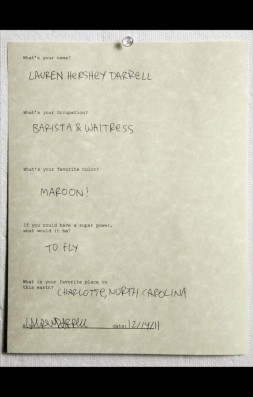 What's your name?
LAUREN HERSHEY DARRELL
What's your Occupation?
BARISTA & WAITRESS
What's your favorite color?
MAROON!
If you could have a super power,
what would it be?
TO FLY
What is your favorite place on
this earth? CHARLOTTE, NORTH CAROLINA
date: 12/14/11